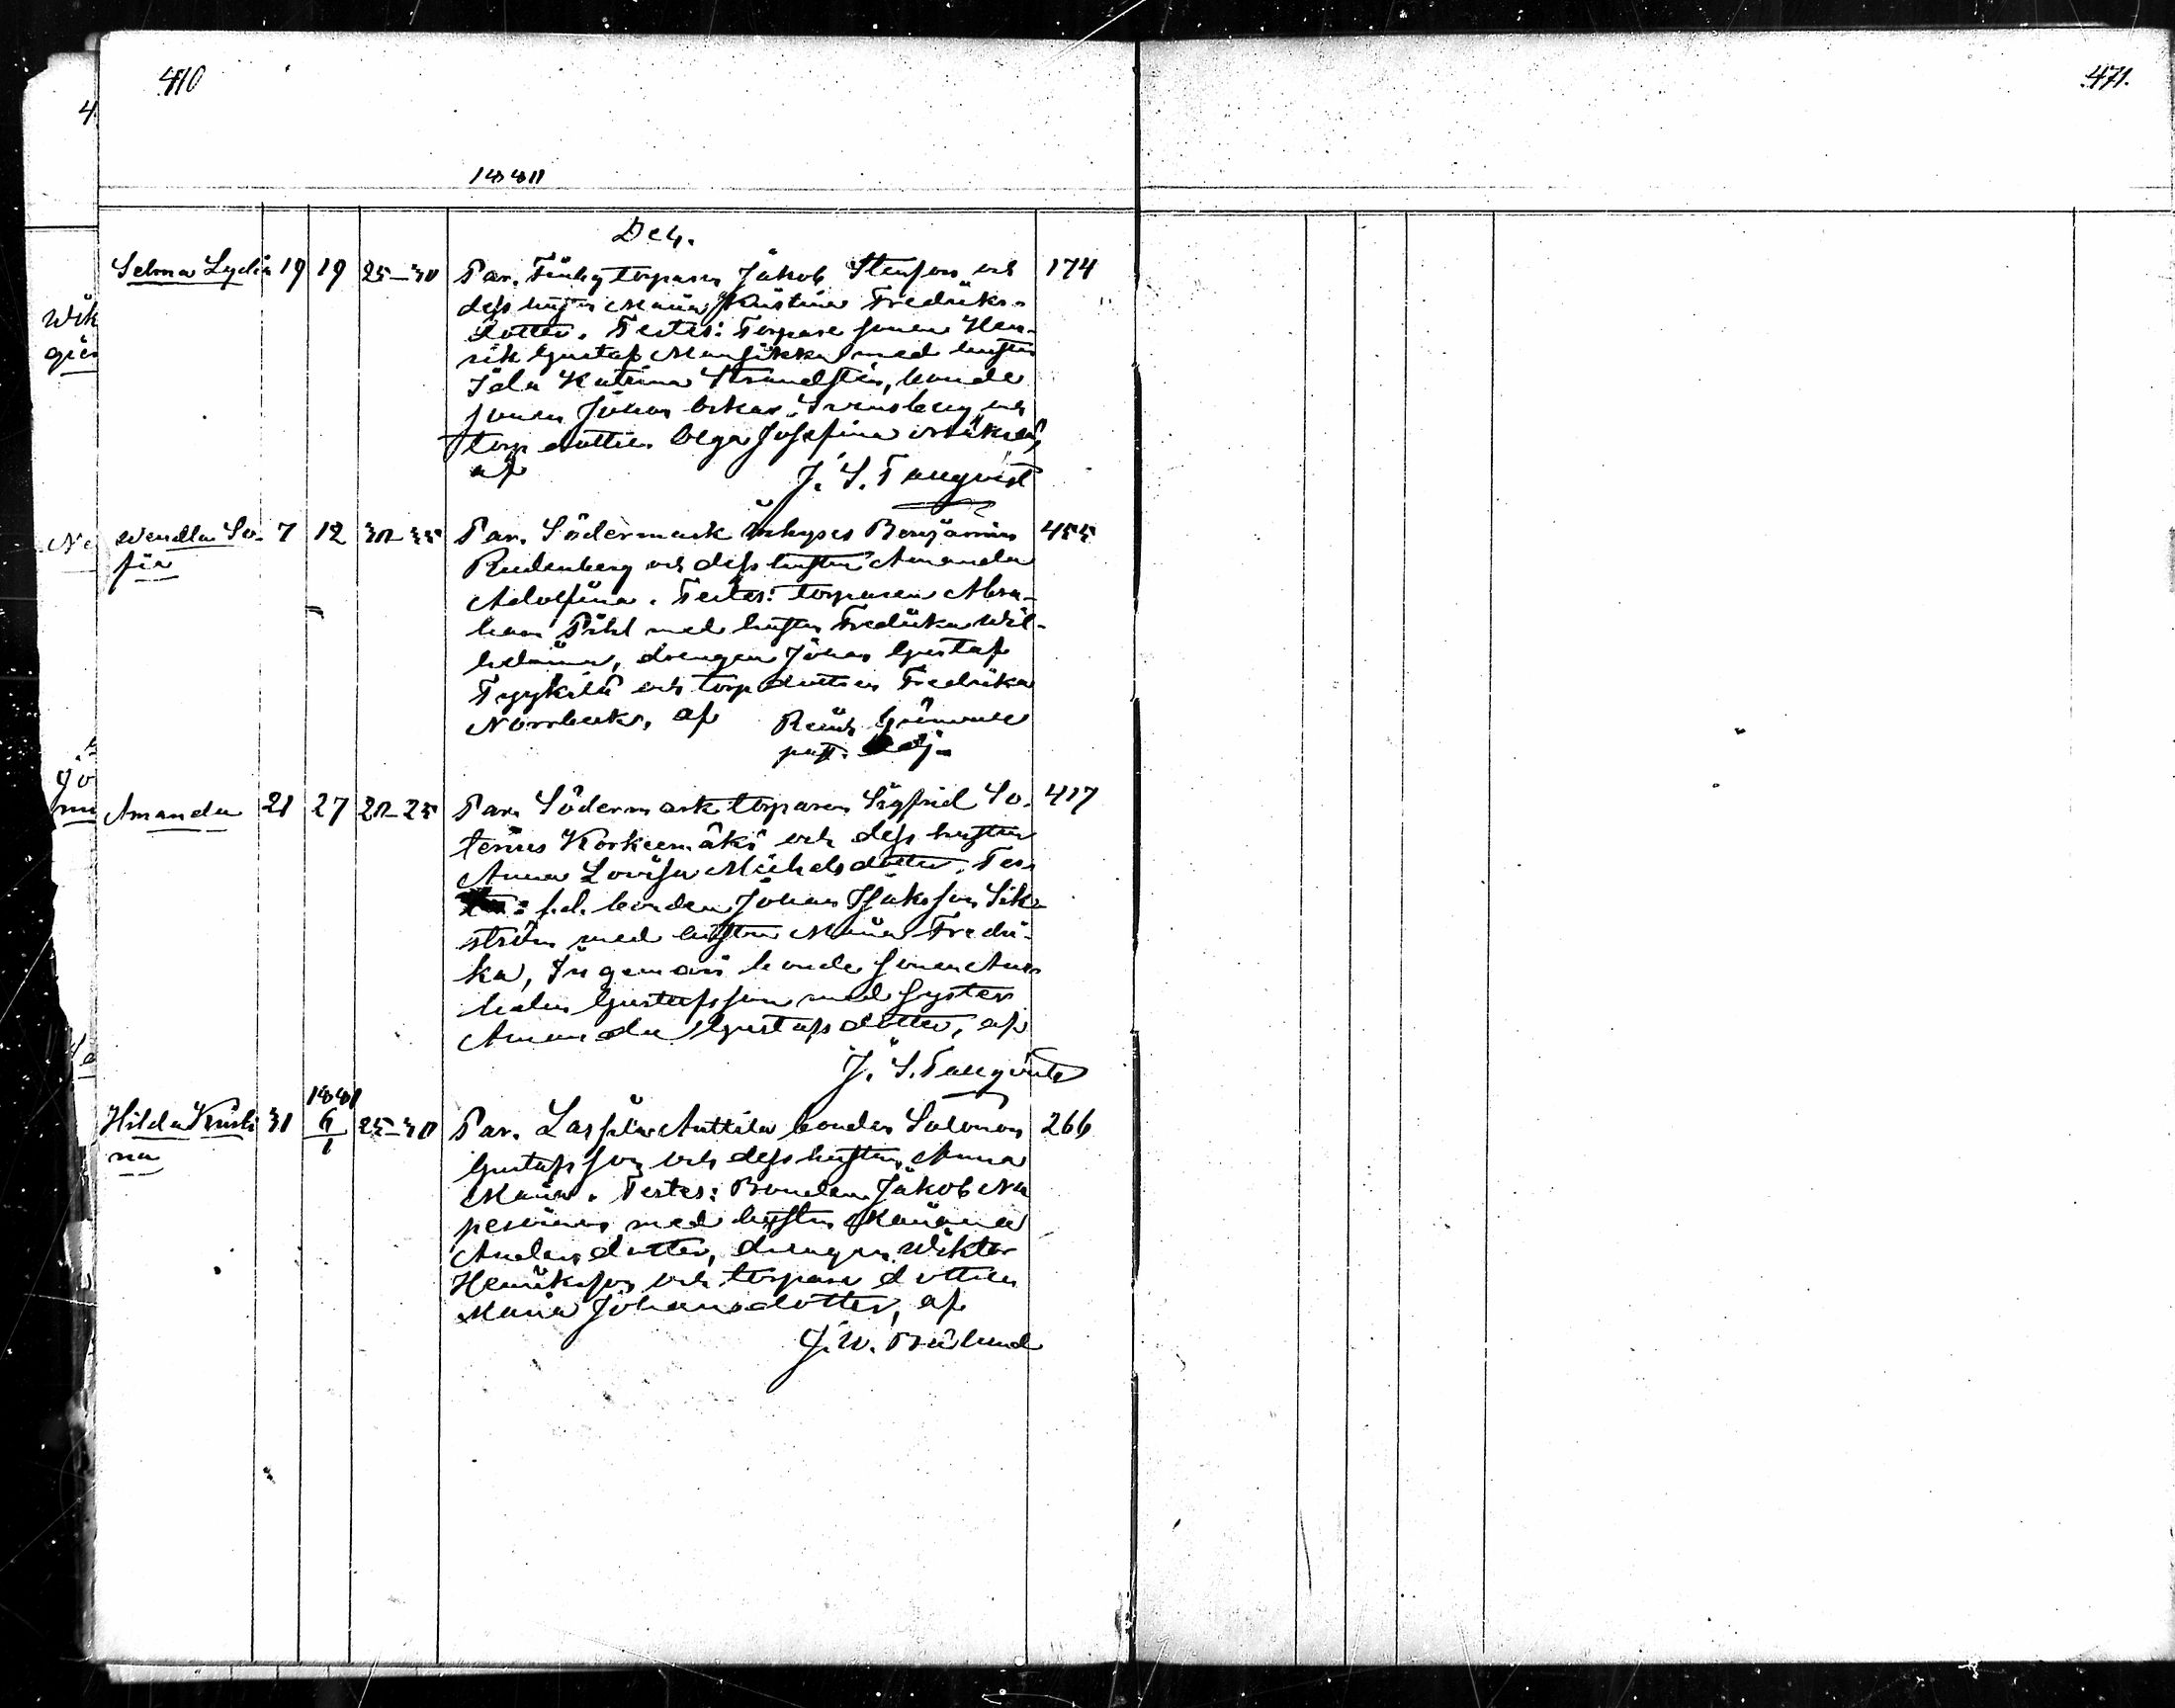 410
471.
1880
Dec.
Selma Lydia 19 19 25-30 Par. Finby torparen Jakob Stenfors och 174
dess hustru Maria Kristina Fredriks-
dotter. Testes: Torpare sonen Hen-
rik Gustaf Mansikka med hustru
Ida Katrina Strandsten, bonde
sonen Johan Oskar Svensberg och
torp. dottren Olga Josefina
af J. S. Tallqvist
Wendla So- 7 12 30-35 Par. Södermark inhyses Benjamin 455
fia Rudenberg och dess hustru Amanda
Adolfina. Testes: torparen Abra-
ham Pihl med hustru Fredrika Wil-
helmina, drengen Johan Gustaf
Tyykilä och torp. dottren Fredrika
Norrback, af
past. adj.
Amanda 21 27 20-25 Par. Södermark torparen Sigfrid So- 417
terius Korkeemäki och dess hustru
Anna Lovisa Michelsdotter. Tes-
: f.d. bonden Johan Isaksson Sik-
ström med hustru Maria Fredri-
ka, bonde sonen
Gustafsson med syster
Amanda Gustafsdotter, af
J. S. Tallqvist
1881
Hilda Kristi 31 6/1 25-30 Par. Lassila Anttila bonden Salomon 266
na Gustafsson och dess hustru Anna
Maria. Testes: Bonden Jakob
med hustru Mariana
Andersdotter, drengen Wiktor
Henriksson och torpare dottren
Maria Johansdotter, af
J. W.